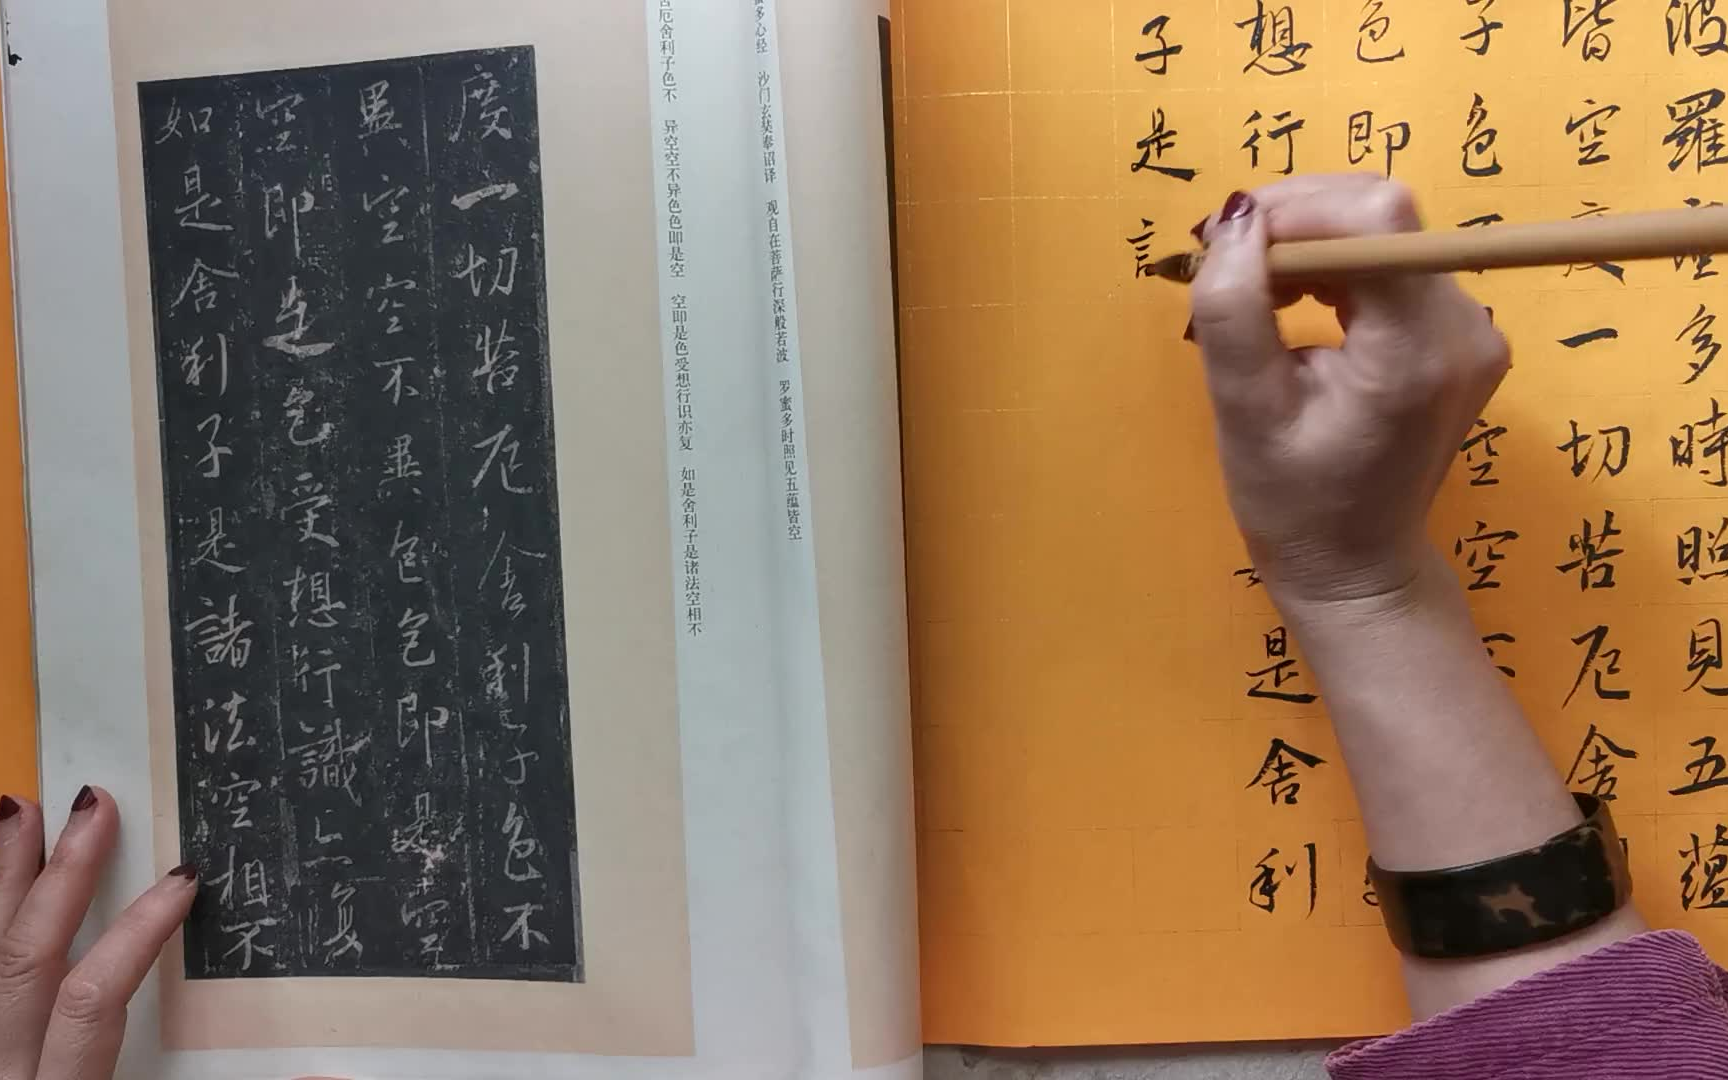 波羅蜜多時照見五蘊
皆空度一切苦厄舍
子色不空空不
色即
想行是舍利
子是言
多心经 沙门玄奘奉诏译 观自在菩萨行深般若波 罗蜜多时照见五蕴皆空
厄舍利子色不 异空空不异色色即是空 空即是色受想行识亦复 如是舍利子是诸法空相不
度一切苦厄舍利子色不
異空空不異色色即是空
空即是色受想行識亦復
如是舍利子是諸法空相不